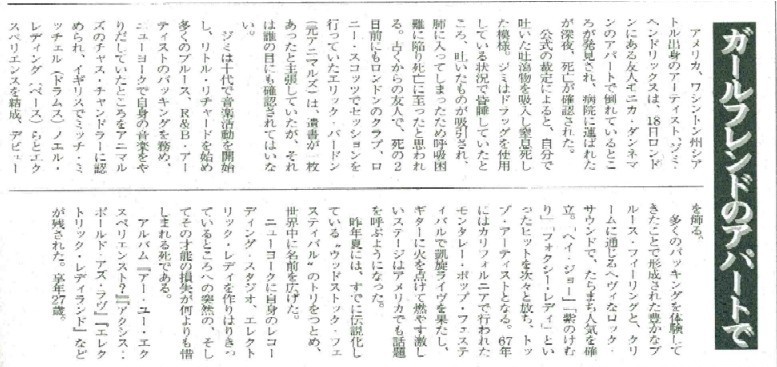 ガールフレンドのアパートで
アメリカ、ワシントン州シア
トル出身のアーティスト、ジミ・
ヘンドリックスは、18日ロンド
ンにある友人モニカ・ダンネマ
ンのアパートで倒れているとこ
ろが発見され、病院に運ばれた
が深夜、死亡が確認された。
公式の裁定によると、自分で
吐いた吐瀉物を吸入し窒息死し
た模様。ジミはドラッグを使用
している状況で昏睡していたと
ころ、吐いたものが吸引され、
肺に入ってしまったため呼吸困
難に陥り死亡に至ったと思われ
る。古くからの友人で、死の2
日前にもロンドンのクラブ、ロ
ニー・スコッツでセッションを
行っていたエリック・バードン
(元アニマルズ)は、遺書が一枚
あったと主張していたが、それ
は誰の目にも確認されてはいな
い。
ジミは十代で音楽活動を開始
し、リトル・リチャードを始め
多くのブルース、R&B・アー
ティストのバッキングを務め、
ニューヨークで自身の音楽をや
りだしていたところをアニマル
ズのチャス・チャンドラーに認
められ、イギリスでミッチ・ミ
ッチェル(ドラムス)ノエル・
レディング(ベース)らとエク
スペリエンスを結成、デビュー
を飾る。
多くのバッキングを体験して
きたことで形成された豊かなブ
ルース・フィーリングと、クリ
ームに通じるヘヴィなロック・
サウンドで、たちまち人気を確
立。「ヘイ・ジョー」「紫のけむ
り」「フォクシー・レディ」とい
ったヒットを次々と放ち、トッ
プ・アーティストとなる。67年
にはカリフォルニアで行われた
モンタレー・ポップ・フェステ
ィバルで凱旋ライヴを果たし、
ギターに火を点けて燃やす激し
いステージはアメリカでも話題
を呼ぶようになった。
昨年夏には、すでに伝説化し
ている“ウッドストック・フェ
スティバル”のトリをつとめ、
世界中に名前を広げた。
ニューヨークに自身のレコー
ディング・スタジオ、エレクト
リック・レディを作りはりきっ
ているところへの突然の、そし
てその才能の損失が何よりも惜
しまれる死である。
アルバム『アー・ユー・エク
スペリエンスト?』『アクシス・
ボールド・アズ・ラヴ』『エレク
トリック・レディランド』など
が残された。享年27歳。